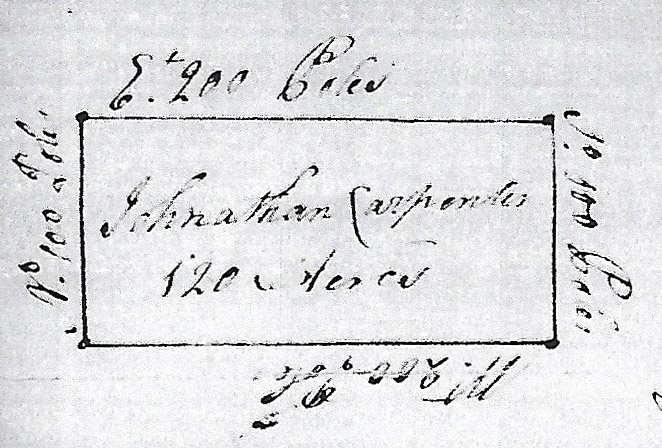 Et. 200 Poles
No. 100 Pols
Johnathan Carpenter
120 Acres
So. 100 Poles
W. 200 Pols